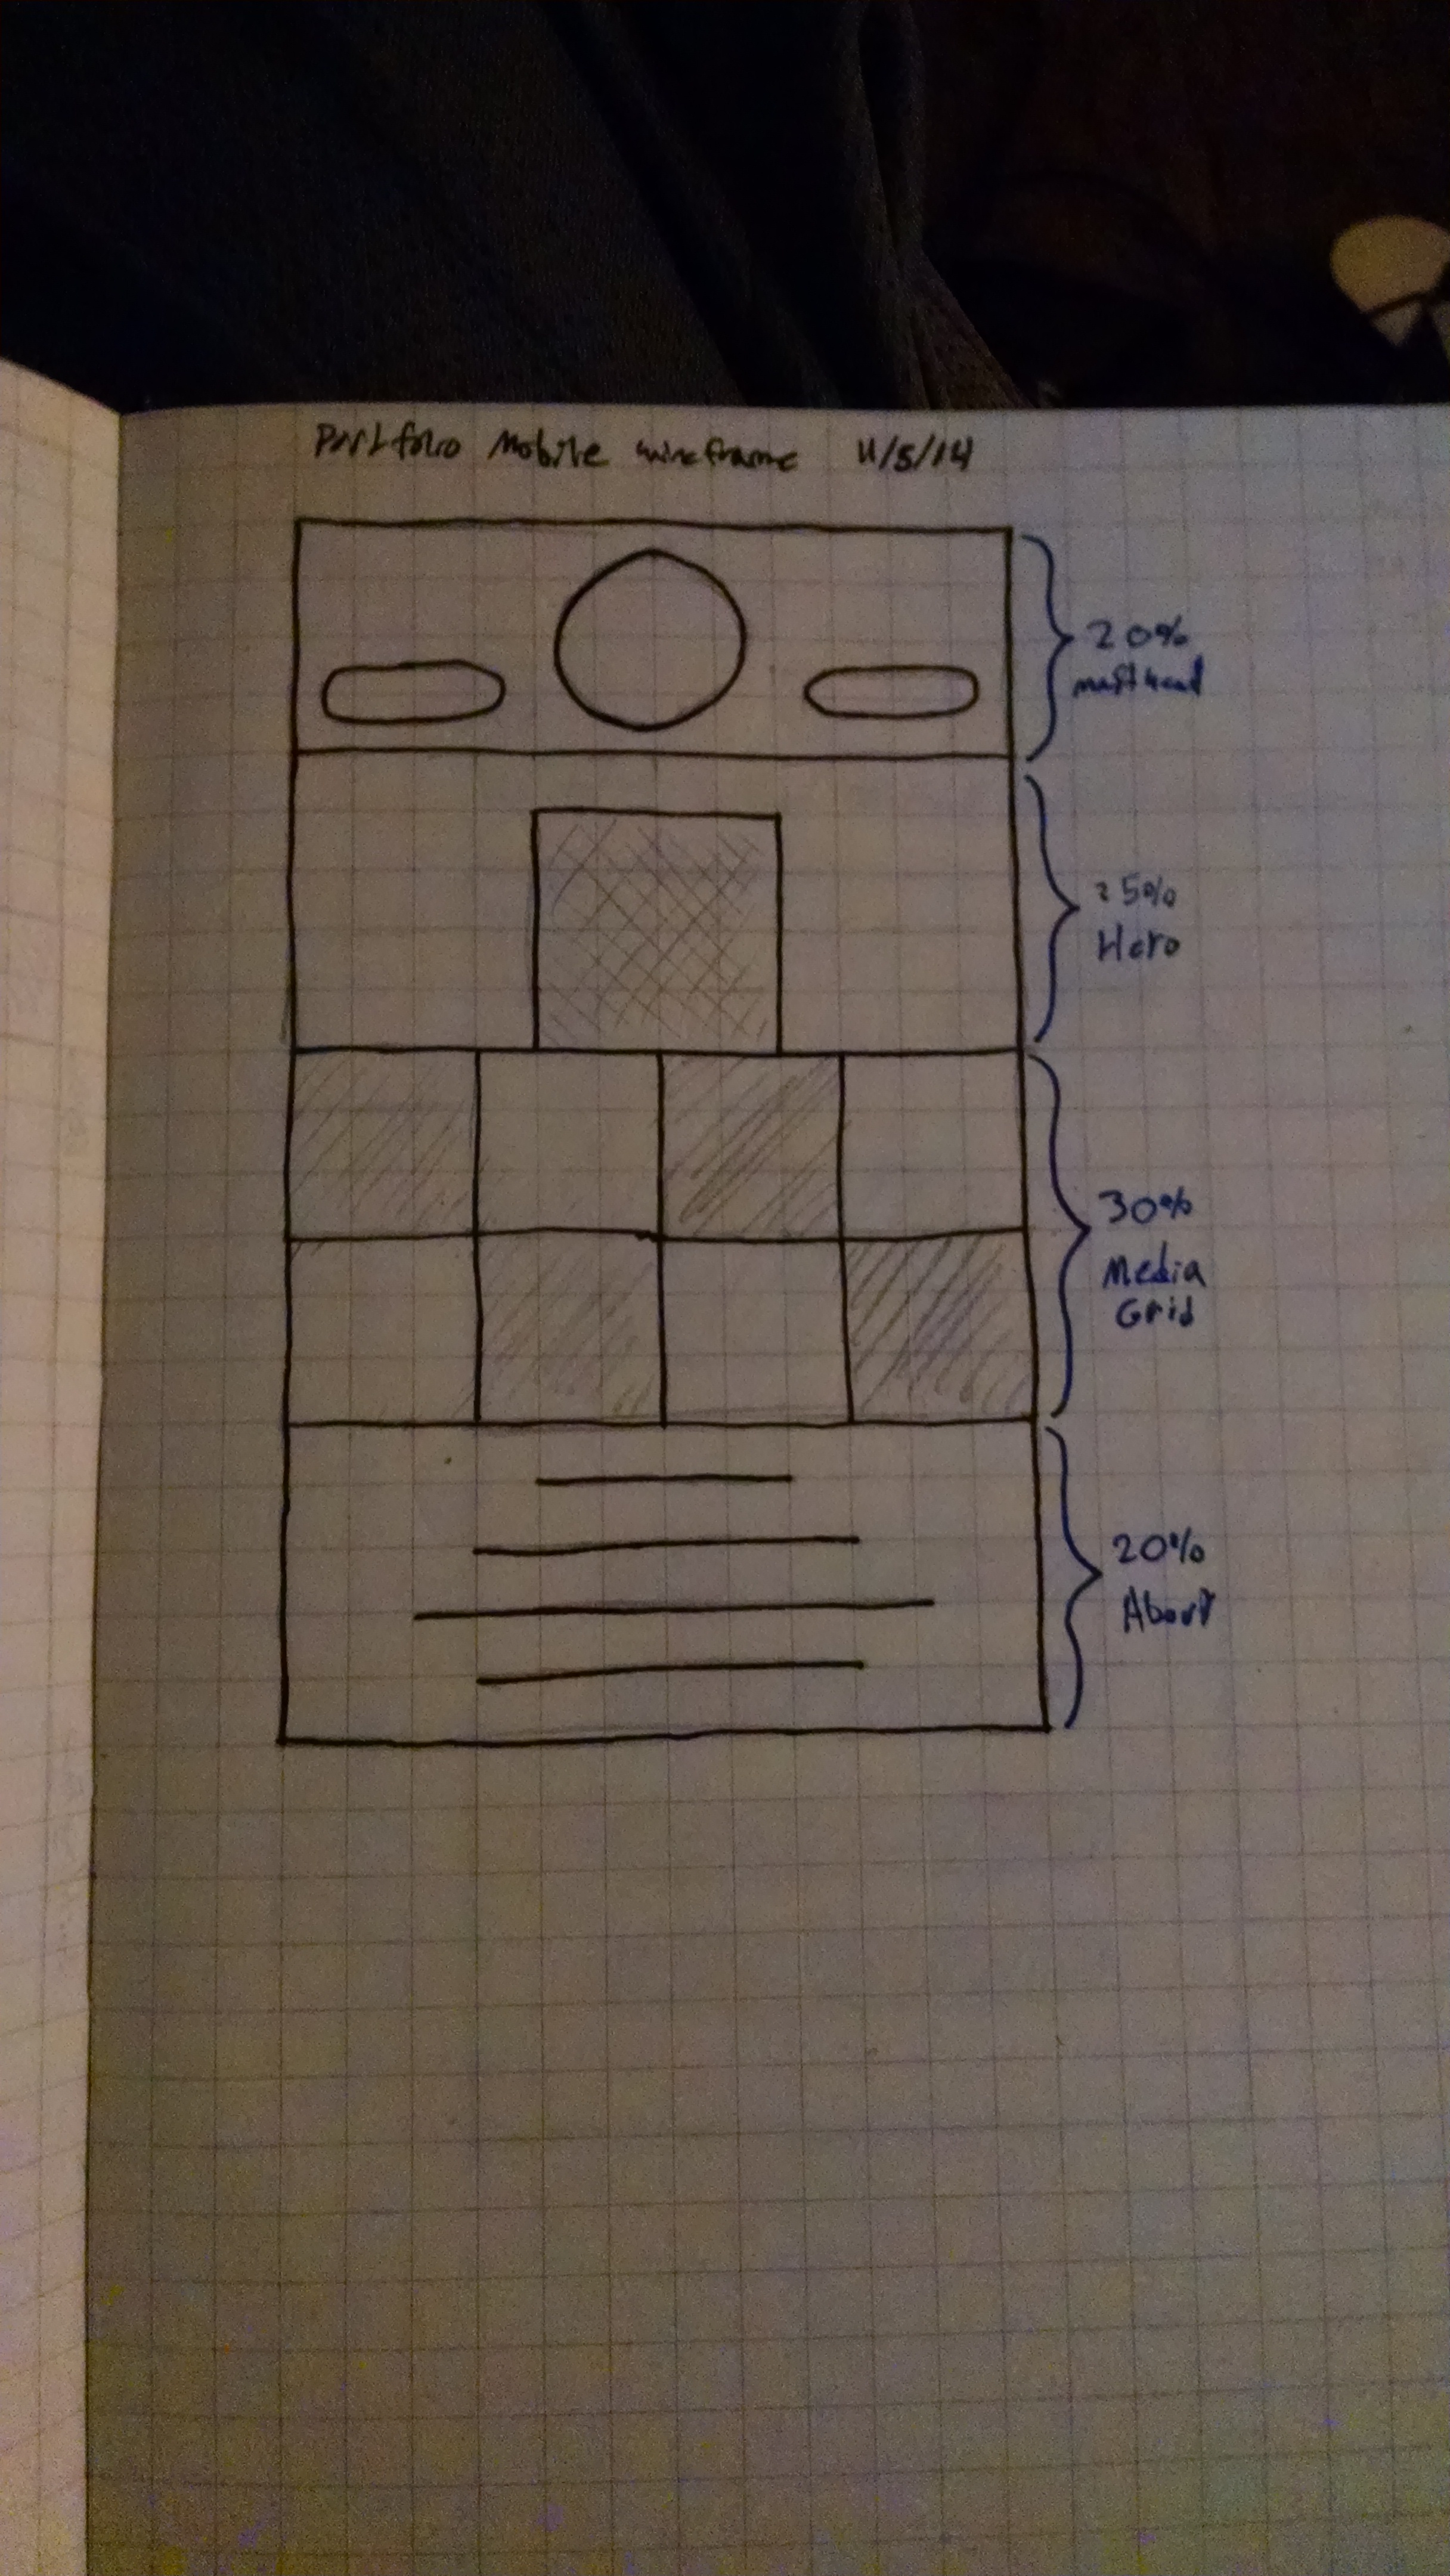 Portfolio Mobile wireframe 11/5/14
20%
masthead
25%
Hero
30%
Media
Grid
20%
About